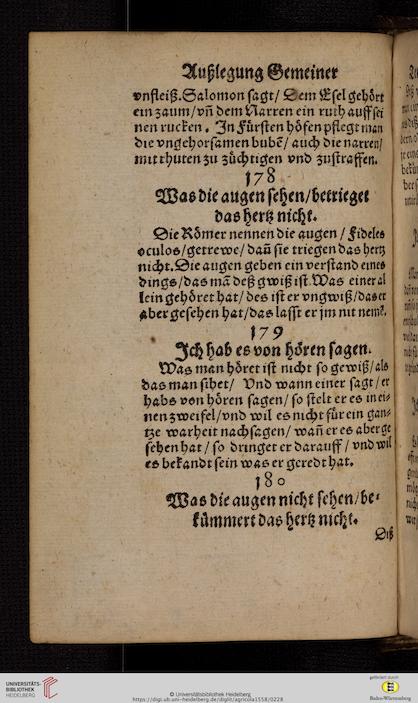 Außlegung Gemeiner
vnfleiß. Salomon sagt/ Dem Esel gehört
ein zaum/vñ dem Narren ein ruth auff sei
nen rucken. In Fürsten höfen pflegt man
die vngehorsamen bubẽ/ auch die narren/
mit rhuten zu züchtigen vnd zustraffen.
178
Was die augen sehen/betrieget
das hertz nicht.
Die Römer nennen die augen/ Fideles
oculos/getrewe/dañ sie triegen das hertz
nicht. Die augen geben ein verstand eines
dings/das mã deß gwiß ist. Was einer al
lein gehöret hat/des ist er vngwiß/das er
aber gesehen hat/das lasst er jm nit nemẽ.
179
Ich hab es von hören sagen.
Was man höret ist nicht so gewiß/als
das man sihet/ Vnd wann einer sagt/er
habs von hören sagen/so stelt er es in ei-
nen zweifel/vnd wil es nicht für ein gan-
tze warheit nachsagen/wañ er es aber ge
sehen hat/so dringet er darauff/vnd wil
es bekandt sein was er geredt hat.
180
Was die augen nicht sehen/be-
kümmert das hertz nicht.
Diß
UNIVERSITÄTS-
BIBLIOTHEK
HEIDELBERG
© Universitätsbibliothek Heidelberg
https://digi.ub.uni-heidelberg.de/diglit/agricola1558/0228
gefördert durch
Baden-Württemberg